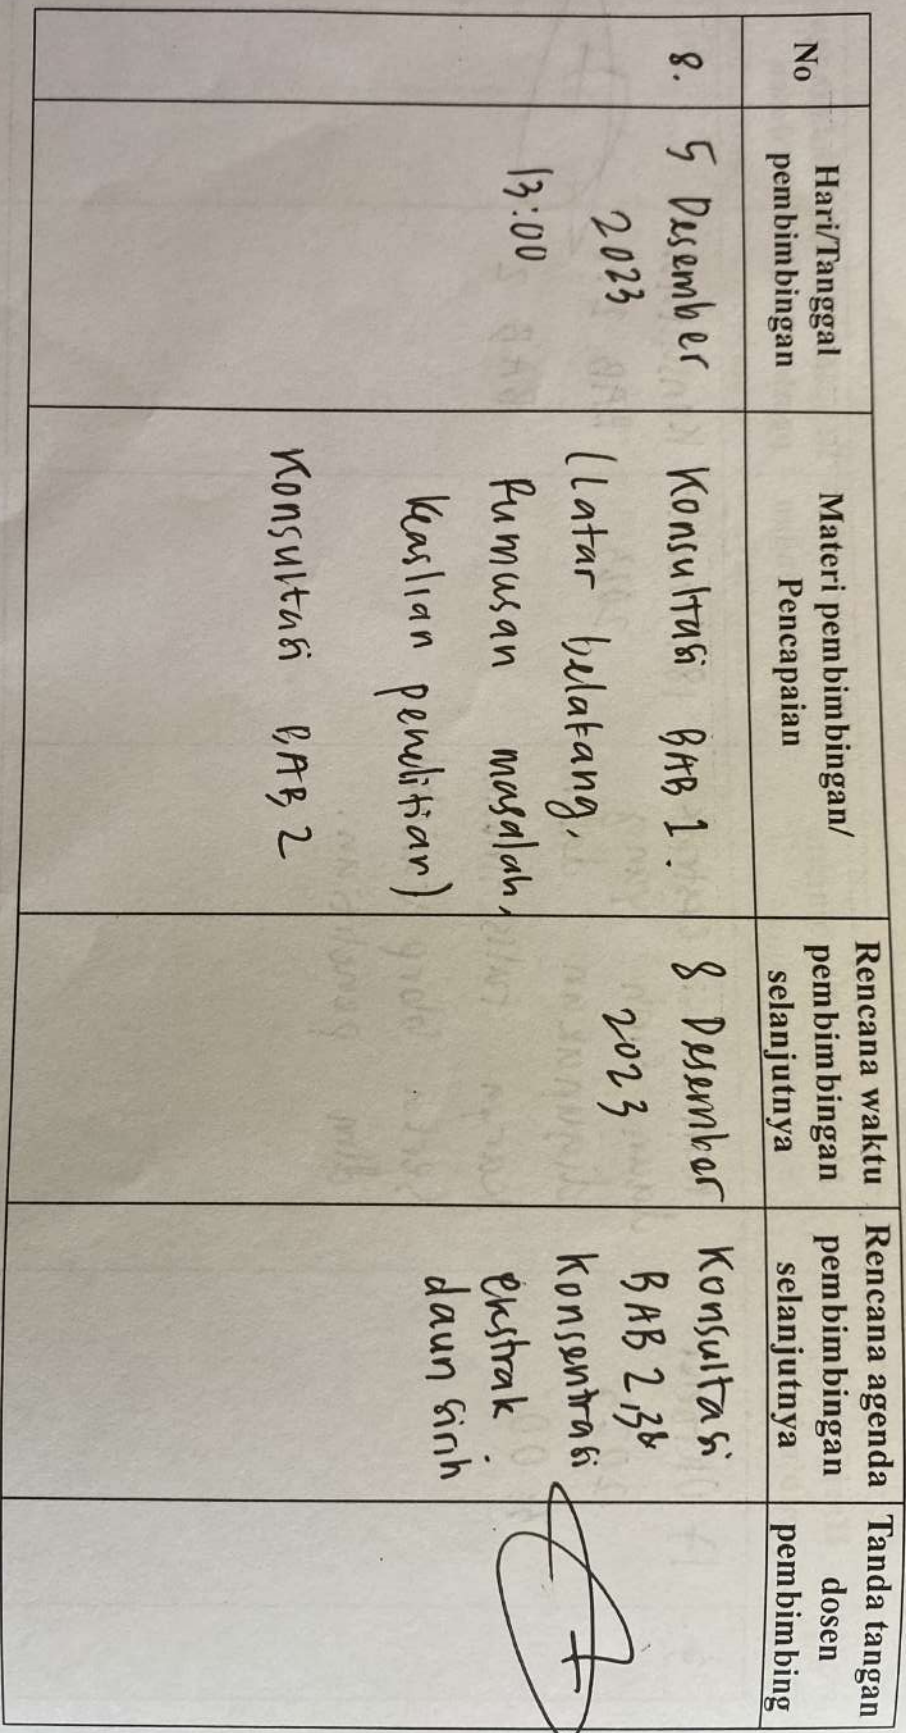 No
Hari/Tanggal
pembimbingan
Materi pembimbingan/
Pencapaian
Rencana waktu
pembimbingan
selanjutnya
Rencana agenda
pembimbingan
selanjutnya
Tanda tangan
dosen
pembimbing
8.
5 Desember
2023
13:00
Konsultasi BAB 1.
(Latar belakang,
Rumusan masalah,
keaslian penelitian)
Konsultasi BAB 2
8 Desember
2023
Konsultasi
BAB 2,3&
Konsentrasi
ekstrak
daun sirih